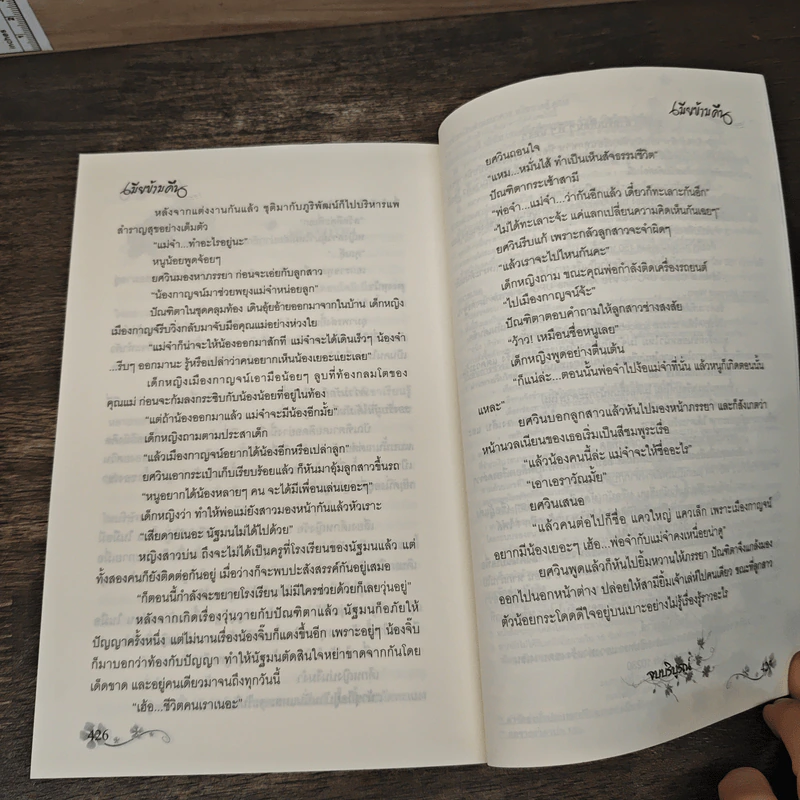 เมียข้ามคืน
หลังจากแต่งงานกันแล้ว ชุติมากับภูริพัฒน์ก็ไปบริหารแพ
สำราญสุขอย่างเต็มตัว
“แม่จ๋า...ทำอะไรอยู่นะ”
หนูน้อยพูดจ้อยๆ
ยศวินมองหาภรรยา ก่อนจะเอ่ยกับลูกสาว
“น้องกาญจน์มาช่วยพยุงแม่จ๋าหน่อยลูก”
ปัณฑิตาในชุดคลุมท้อง เดินอุ้ยอ้ายออกมาจากในบ้าน เด็กหญิง
เมืองกาญจน์รีบวิ่งกลับมาจับมือคุณแม่อย่างห่วงใย
“แม่จ๋าก็น่าจะให้น้องออกมาสักที แม่จ๋าจะได้เดินเร็วๆ น้องจ๋า
...รีบๆ ออกมานะ รู้หรือเปล่าว่าคนอยากเห็นน้องเยอะแยะเลย”
เด็กหญิงเมืองกาญจน์เอามือน้อยๆ ลูบที่ท้องกลมโตของ
คุณแม่ ก่อนจะก้มลงกระซิบกับน้องน้อยที่อยู่ในท้อง
“แต่ถ้าน้องออกมาแล้ว แม่จ๋าจะมีน้องอีกมั้ย”
เด็กหญิงถามตามประสาเด็ก
“แล้วเมืองกาญจน์อยากได้น้องอีกหรือเปล่าลูก”
ยศวินเอากระเป๋าเก็บเรียบร้อยแล้ว ก็หันมาอุ้มลูกสาวขึ้นรถ
“หนูอยากได้น้องหลายๆ คน จะได้มีเพื่อนเล่นเยอะๆ”
เด็กหญิงว่า ทำให้พ่อแม่ยังสาวมองหน้ากันแล้วหัวเราะ
“เสียดายเนอะ นัฐมนไม่ได้ไปด้วย”
หญิงสาวบ่น ถึงจะไม่ได้เป็นครูที่โรงเรียนของนัฐมนแล้ว แต่
ทั้งสองคนก็ยังติดต่อกันอยู่ เมื่อว่างก็จะพบปะสังสรรค์กันอยู่เสมอ
“ก็ตอนนี้กำลังจะขยายโรงเรียน ไม่มีใครช่วยด้วยก็เลยวุ่นอยู่”
หลังจากเกิดเรื่องวุ่นวายกับปัณฑิตาแล้ว นัฐมนก็อภัยให้
ปัญญาครั้งหนึ่ง แต่ไม่นานเรื่องน้องจิ๊บก็แดงขึ้นอีก เพราะอยู่ๆ น้องจิ๊บ
ก็มาบอกว่าท้องกับปัญญา ทำให้นัฐมนตัดสินใจหย่าขาดจากกันโดย
เด็ดขาด และอยู่คนเดียวมาจนถึงทุกวันนี้
“เฮ้อ...ชีวิตคนเราเนอะ”
426
เมียข้ามคืน
ยศวินถอนใจ
“แหม...หมั่นไส้ ทำเป็นเห็นสัจธรรมชีวิต”
ปัณฑิตากระเซ้าสามี
“พ่อจ๋า...แม่จ๋า...ว่ากันอีกแล้ว เดี๋ยวก็ทะเลาะกันอีก”
“ไม่ได้ทะเลาะจ้ะ แค่แลกเปลี่ยนความคิดเห็นกันเฉยๆ”
ยศวินรีบแก้ เพราะกลัวลูกสาวจะจำผิดๆ
“แล้วเราจะไปไหนกันคะ”
เด็กหญิงถาม ขณะคุณพ่อกำลังติดเครื่องรถยนต์
“ไปเมืองกาญจน์จ้ะ”
ปัณฑิตาตอบคำถามให้ลูกสาวช่างสงสัย
“ว้าว! เหมือนชื่อหนูเลย”
เด็กหญิงพูดอย่างตื่นเต้น
“ก็แน่ล่ะ...ตอนนั้นพ่อจ๋าไปง้อแม่จ๋าที่นั่น แล้วหนูก็เกิดตอนนั้น
แหละ”
ยศวินบอกลูกสาวแล้วหันไปมองหน้าภรรยา และก็สังเกตว่า
หน้านวลเนียนของเธอเริ่มเป็นสีชมพูระเรื่อ
“แล้วน้องคนนี้ล่ะ แม่จ๋าจะให้ชื่ออะไร”
“เอาเอราวัณมั้ย”
ยศวินเสนอ
“แล้วคนต่อไปก็ชื่อ แควใหญ่ แควเล็ก เพราะเมืองกาญจน์
อยากมีน้องเยอะๆ เฮ้อ...พ่อจ๋ากับแม่จ๋าคงเหนื่อยน่าดู”
ยศวินพูดแล้วก็หันไปยิ้มหวานให้ภรรยา ปัณฑิตาจึงแกล้งมอง
ออกไปนอกหน้าต่าง ปล่อยให้สามียิ้มเจ้าเล่ห์ไปคนเดียว ขณะที่ลูกสาว
ตัวน้อยกระโดดดีใจอยู่บนเบาะอย่างไม่รู้เรื่องรู้ราวอะไร
จบบริบูรณ์